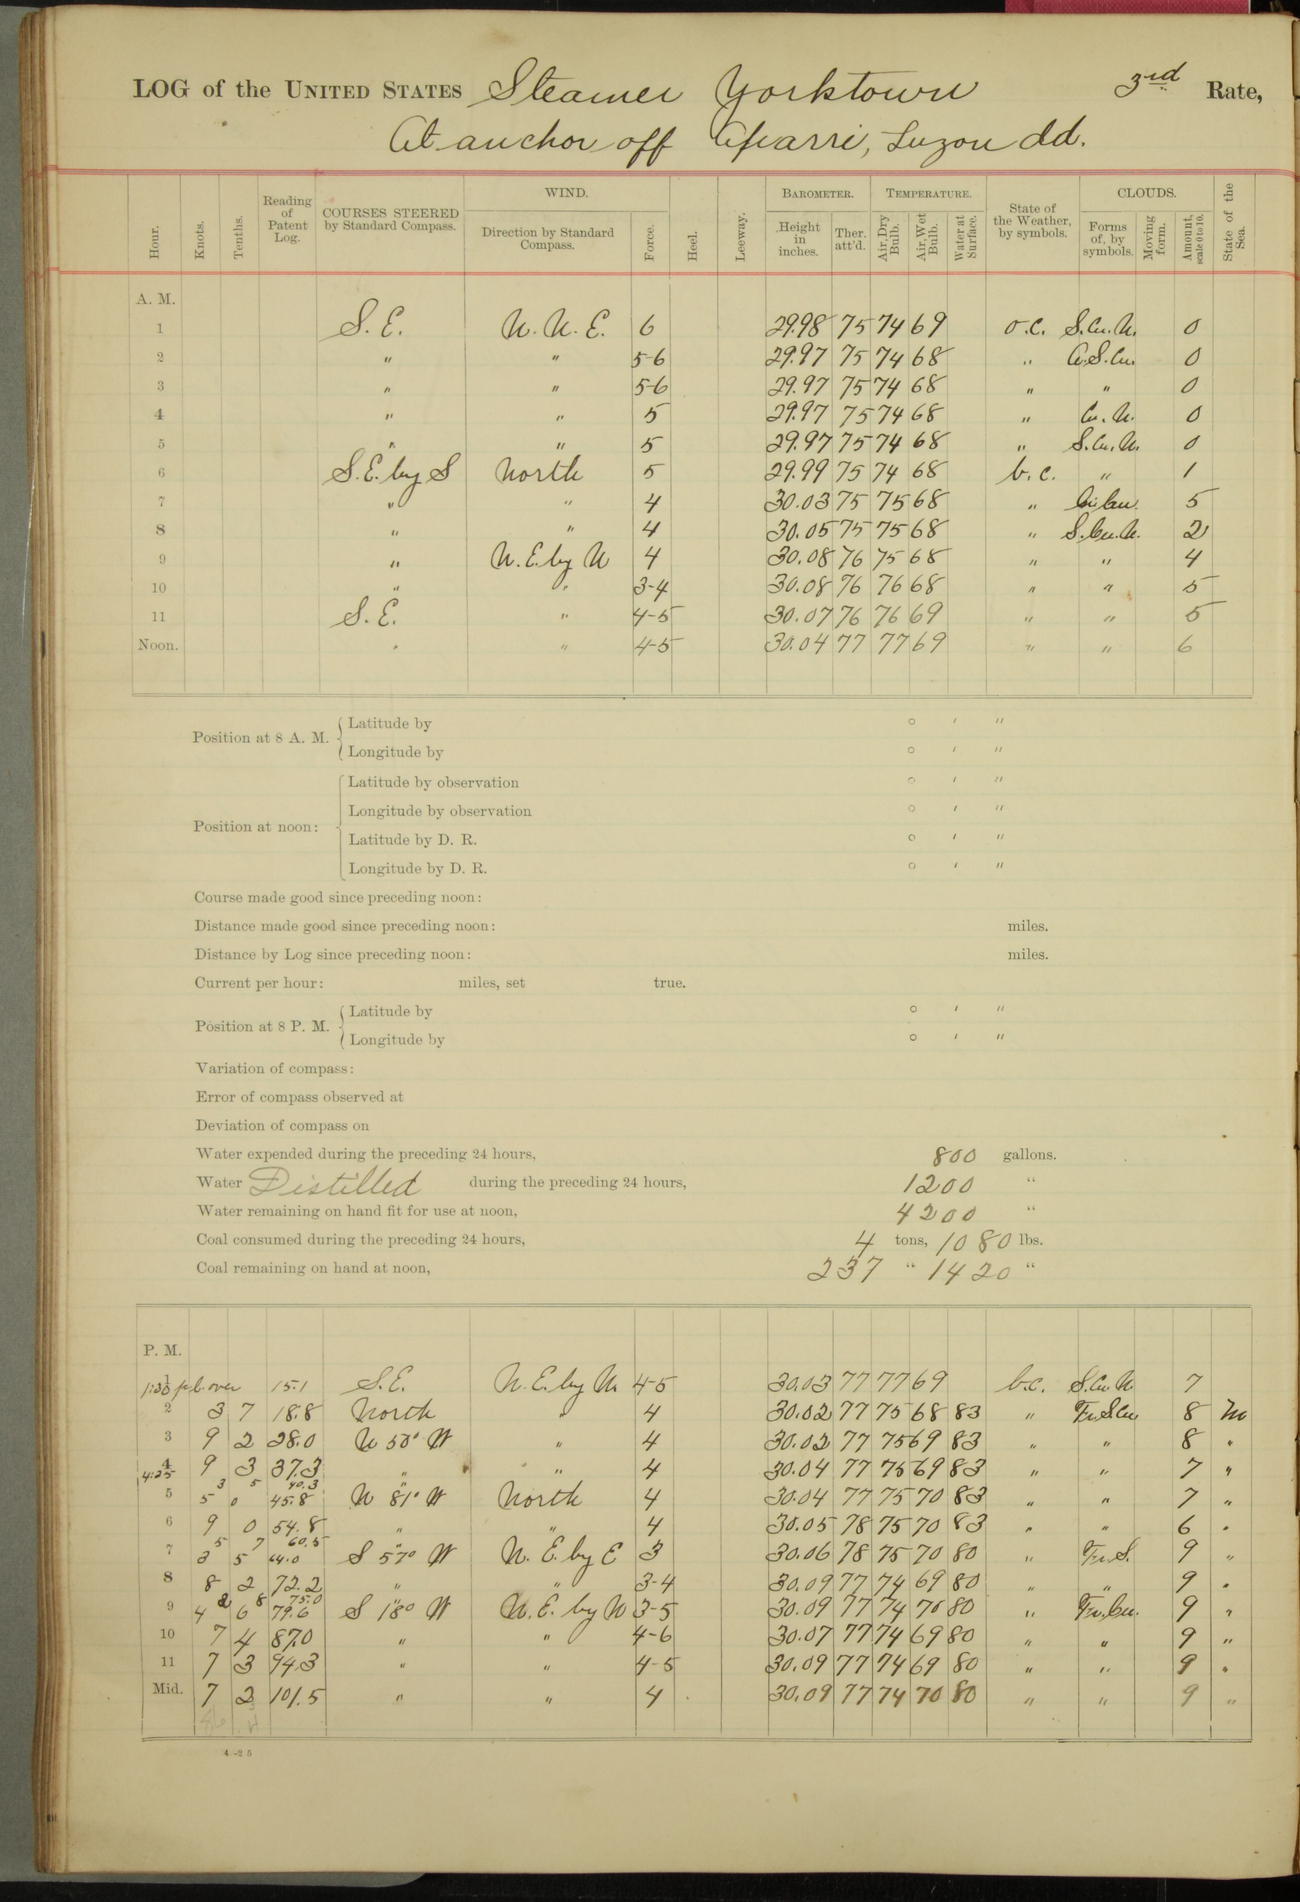 LOG of the UNITED STATES Steamer Yorktown 3rd Rate,
At anchor off Aparri, Luzon dd.
Hour. Knots. Tenths. Reading of Patent Log. COURSES STEERED by Standard Compass. WIND. Direction by Standard Compass. Force. Heel. Leeway. BAROMETER. Height in inches. Ther. att'd. TEMPERATURE. Air, Dry Bulb. Air, Wet Bulb. Water at Surface. State of the Weather, by symbols. CLOUDS. Forms of, by symbols. Moving form. Amount, scale 0 to 10. State of the Sea.
A. M.
1 S. E. N. N. E. 6 29.98 75 74 69 o.c. S.Cu.N. 0
2 " " 5-6 29.97 75 74 68 " C.S.Cu. 0
3 " " 5-6 29.97 75 74 68 " " 0
4 " " 5 29.97 75 74 68 " Cu.N. 0
5 " " 5 29.97 75 74 68 " S.Cu.N. 0
6 S.E. by S North 5 29.99 75 74 68 b.c. " 1
7 " " 4 30.03 75 75 68 " Ci.Cu. 5
8 " " 4 30.05 75 75 68 " S.Cu.N. 2
9 " N.E. by N 4 30.08 76 75 68 " " 4
10 " " 3-4 30.08 76 76 68 " " 5
11 S. E. " 4-5 30.07 76 76 69 " " 5
Noon. " " 4-5 30.04 77 77 69 " " 6
Position at 8 A. M. Latitude by ° ' "
Longitude by ° ' "
Position at noon: Latitude by observation ° ' "
Longitude by observation ° ' "
Latitude by D. R. ° ' "
Longitude by D. R. ° ' "
Course made good since preceding noon:
Distance made good since preceding noon: miles.
Distance by Log since preceding noon: miles.
Current per hour: miles, set true.
Position at 8 P. M. Latitude by ° ' "
Longitude by ° ' "
Variation of compass:
Error of compass observed at
Deviation of compass on
Water expended during the preceding 24 hours, 800 gallons.
Water Distilled during the preceding 24 hours, 1200 "
Water remaining on hand fit for use at noon, 4200 "
Coal consumed during the preceding 24 hours, 4 tons, 1080 lbs.
Coal remaining on hand at noon, 237 " 1420 "
P. M.
1:30 p.l. over 15.1 S.E. N.E. by N. 4-5 30.03 77 77 69 b.c. S.Cu.N. 7
2 3 7 18.8 North " 4 30.02 77 75 68 83 " Fr.S.Cu. 8 M
3 9 2 28.0 N 50° W " 4 30.02 77 75 69 83 " " 8 "
4 9 3 37.3 " " 4 30.04 77 75 69 83 " " 7 "
4:25 3 5 40.3
5 5 0 45.8 N 81° W North 4 30.04 77 75 70 83 " " 7 "
6 9 0 54.8 " " 4 30.05 78 75 70 83 " " 6 "
5 7 60.5
7 3 5 64.0 S 57° W N. E. by E 3 30.06 78 75 70 80 " Fr.S. 9 "
8 8 2 72.2 " " 3-4 30.09 77 74 69 80 " " 9 "
2 8 75.0
9 4 6 79.6 S 18° W N.E. by N 3-5 30.09 77 74 70 80 " Fr.Cu. 9 "
10 7 4 87.0 " " 4-6 30.07 77 74 69 80 " " 9 "
11 7 3 94.3 " " 4-5 30.09 77 74 69 80 " " 9 "
Mid. 7 2 101.5 " " 4 30.09 77 74 70 80 " " 9 "
86 4
4-25